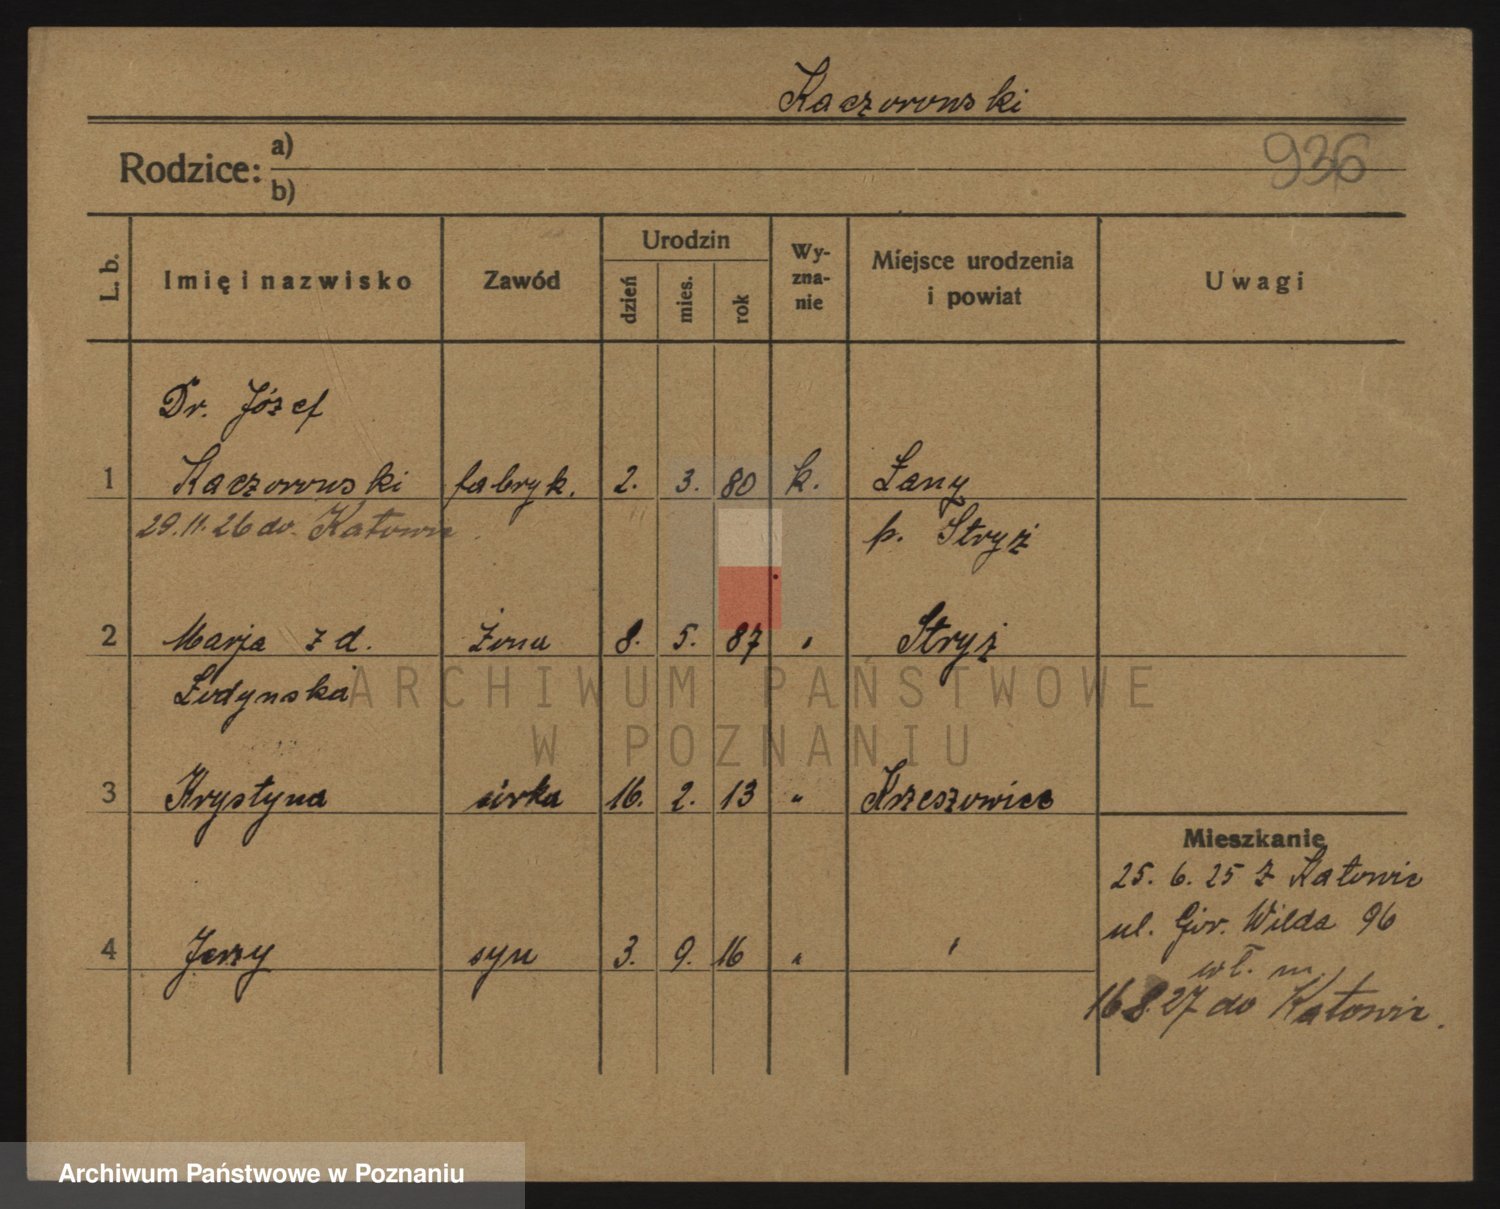 Kaczorowski
936
Rodzice: a)
b)
L. b. Imię i nazwisko Zawód Urodzin dzień mies. rok Wy-zna-nie Miejsce urodzenia i powiat Uwagi
Dr. Józef
1 Kaczorowski fabryk. 2. 3. 80 k. Łany
29.11.26 do Katowic p. Stryż
2 Marja z d. żona 8. 5. 87 " Stryż
Łodynska
ARCHIWUM PAŃSTWOWE
W POZNANIU
3 Krystyna córka 16. 2. 13 " Krzeszowice
Mieszkanie
25. 6. 25 z Katowic
ul. Gór. Wilda 96
4 Jerzy syn 3. 9. 16 " "
wł. m.
16 8 27 do Katowic.
Archiwum Państwowe w Poznaniu